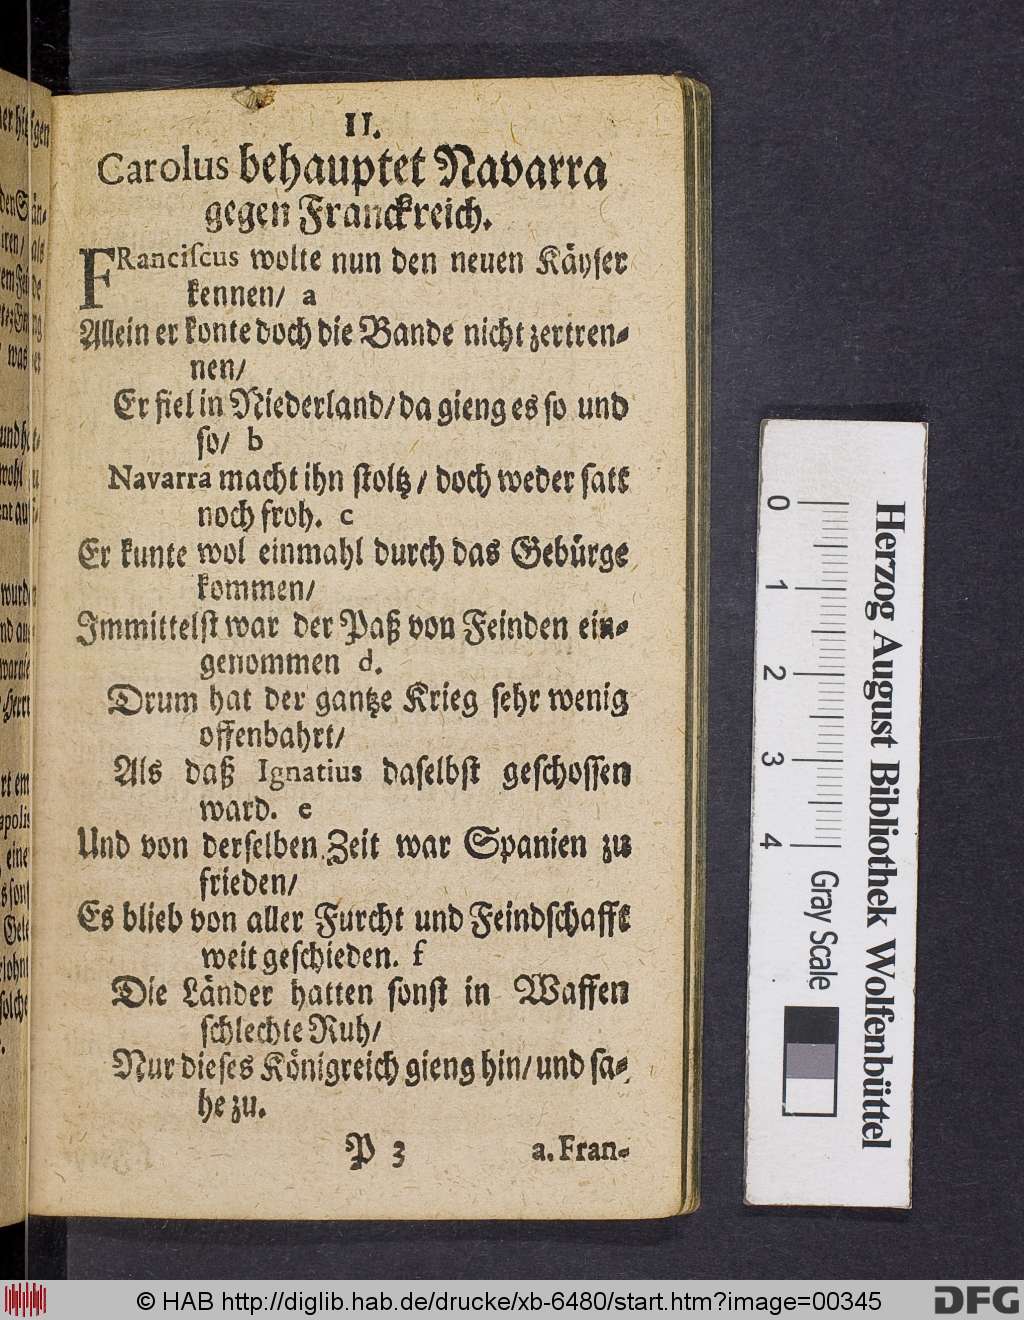 II.
Carolus behauptet Navarra
gegen Franckreich.
FRanciſcus wolte nun den neuen Käyſer
kennen/ a
Allein er konte doch die Bande nicht zertren-
nen/
Er fiel in Niederland/ da gieng es ſo und
ſo/ b
Navarra macht ihn ſtoltz/ doch weder ſatt
noch froh. c
Er kunte wol einmahl durch das Gebürge
kommen/
Immittelſt war der Paß von Feinden ein-
genommen d.
Drum hat der gantze Krieg ſehr wenig
offenbahrt/
Als daß Ignatius daſelbſt geſchoſſen
ward. e
Und von derſelben Zeit war Spanien zu
frieden/
Es blieb von aller Furcht und Feindſchafft
weit geſchieden. f
Die Länder hatten ſonſt in Waffen
ſchlechte Ruh/
Nur dieſes Königreich gieng hin/ und ſa-
he zu.
P 3 a. Fran-
0 1 2 3 4 Gray Scale
Herzog August Bibliothek Wolfenbüttel
© HAB http://diglib.hab.de/drucke/xb-6480/start.htm?image=00345
DFG